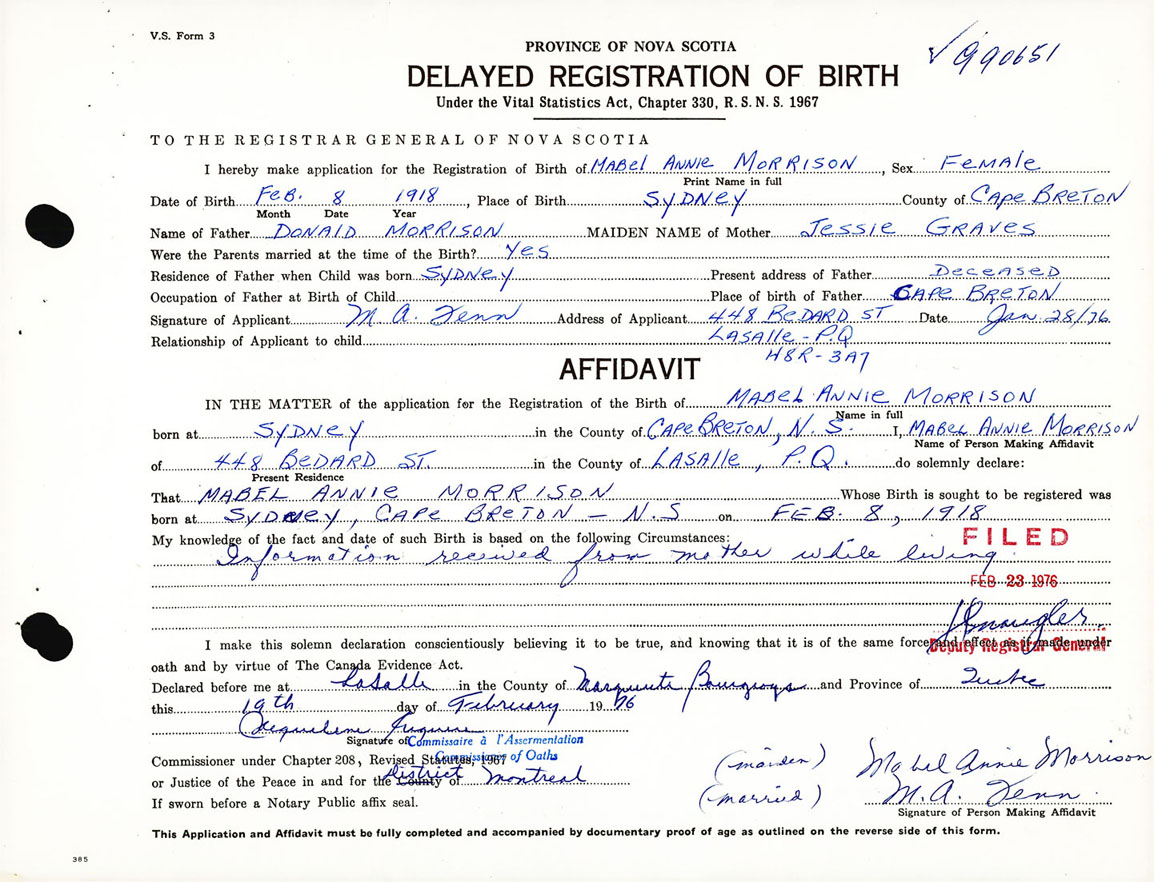 V.S. Form 3
PROVINCE OF NOVA SCOTIA
√990651
DELAYED REGISTRATION OF BIRTH
Under the Vital Statistics Act, Chapter 330, R.S.N.S. 1967
TO THE REGISTRAR GENERAL OF NOVA SCOTIA
I hereby make application for the Registration of Birth of MABEL ANNIE MORRISON, Sex FEMALE
Print Name in full
Date of Birth FEB. 8 1918, Place of Birth SYDNEY County of CAPE BRETON
Month Date Year
Name of Father DONALD MORRISON MAIDEN NAME of Mother JESSIE GRAVES
Were the Parents married at the time of the Birth? YES
Residence of Father when Child was born SYDNEY Present address of Father DECEASED
Occupation of Father at Birth of Child Place of birth of Father CAPE BRETON
Signature of Applicant M A. Fenn Address of Applicant 448 BEDARD ST Date Jan. 28/76
Relationship of Applicant to child LASALLE - P.Q
H8R-3A7
AFFIDAVIT
IN THE MATTER of the application for the Registration of the Birth of MABEL ANNIE MORRISON
Name in full
born at SYDNEY in the County of CAPE BRETON, N.S. I, MABEL ANNIE MORRISON
Name of Person Making Affidavit
of 448 BEDARD ST. in the County of LASALLE, P.Q. do solemnly declare:
Present Residence
That MABEL ANNIE MORRISON Whose Birth is sought to be registered was
born at SYDNEY, CAPE BRETON - N.S on FEB. 8, 1918
My knowledge of the fact and date of such Birth is based on the following Circumstances:
FILED
Information received from mother while living
FEB 23 1976
I make this solemn declaration conscientiously believing it to be true, and knowing that it is of the same force and effect as if made under
Deputy Registrar General
oath and by virtue of The Canada Evidence Act.
Declared before me at LaSalle in the County of Marguerite Bourgeoys and Province of Quebec
this 19th day of February 1976
Signature of Commissaire à l'Assermentation
Commissioner of Oaths
Commissioner under Chapter 208, Revised Statutes, 1967
or Justice of the Peace in and for the County of District Montreal
If sworn before a Notary Public affix seal.
(maiden) Mabel Annie Morrison
(married) M.A. Fenn
Signature of Person Making Affidavit
This Application and Affidavit must be fully completed and accompanied by documentary proof of age as outlined on the reverse side of this form.
385